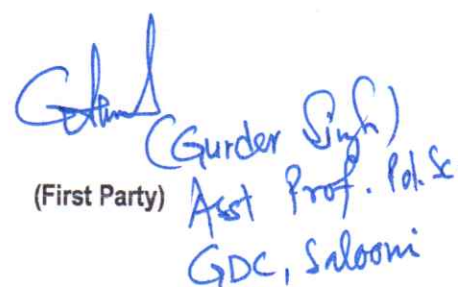 (Gurder Singh)
(First Party) Asst Prof. Pol. Sc
GDC, Salooni